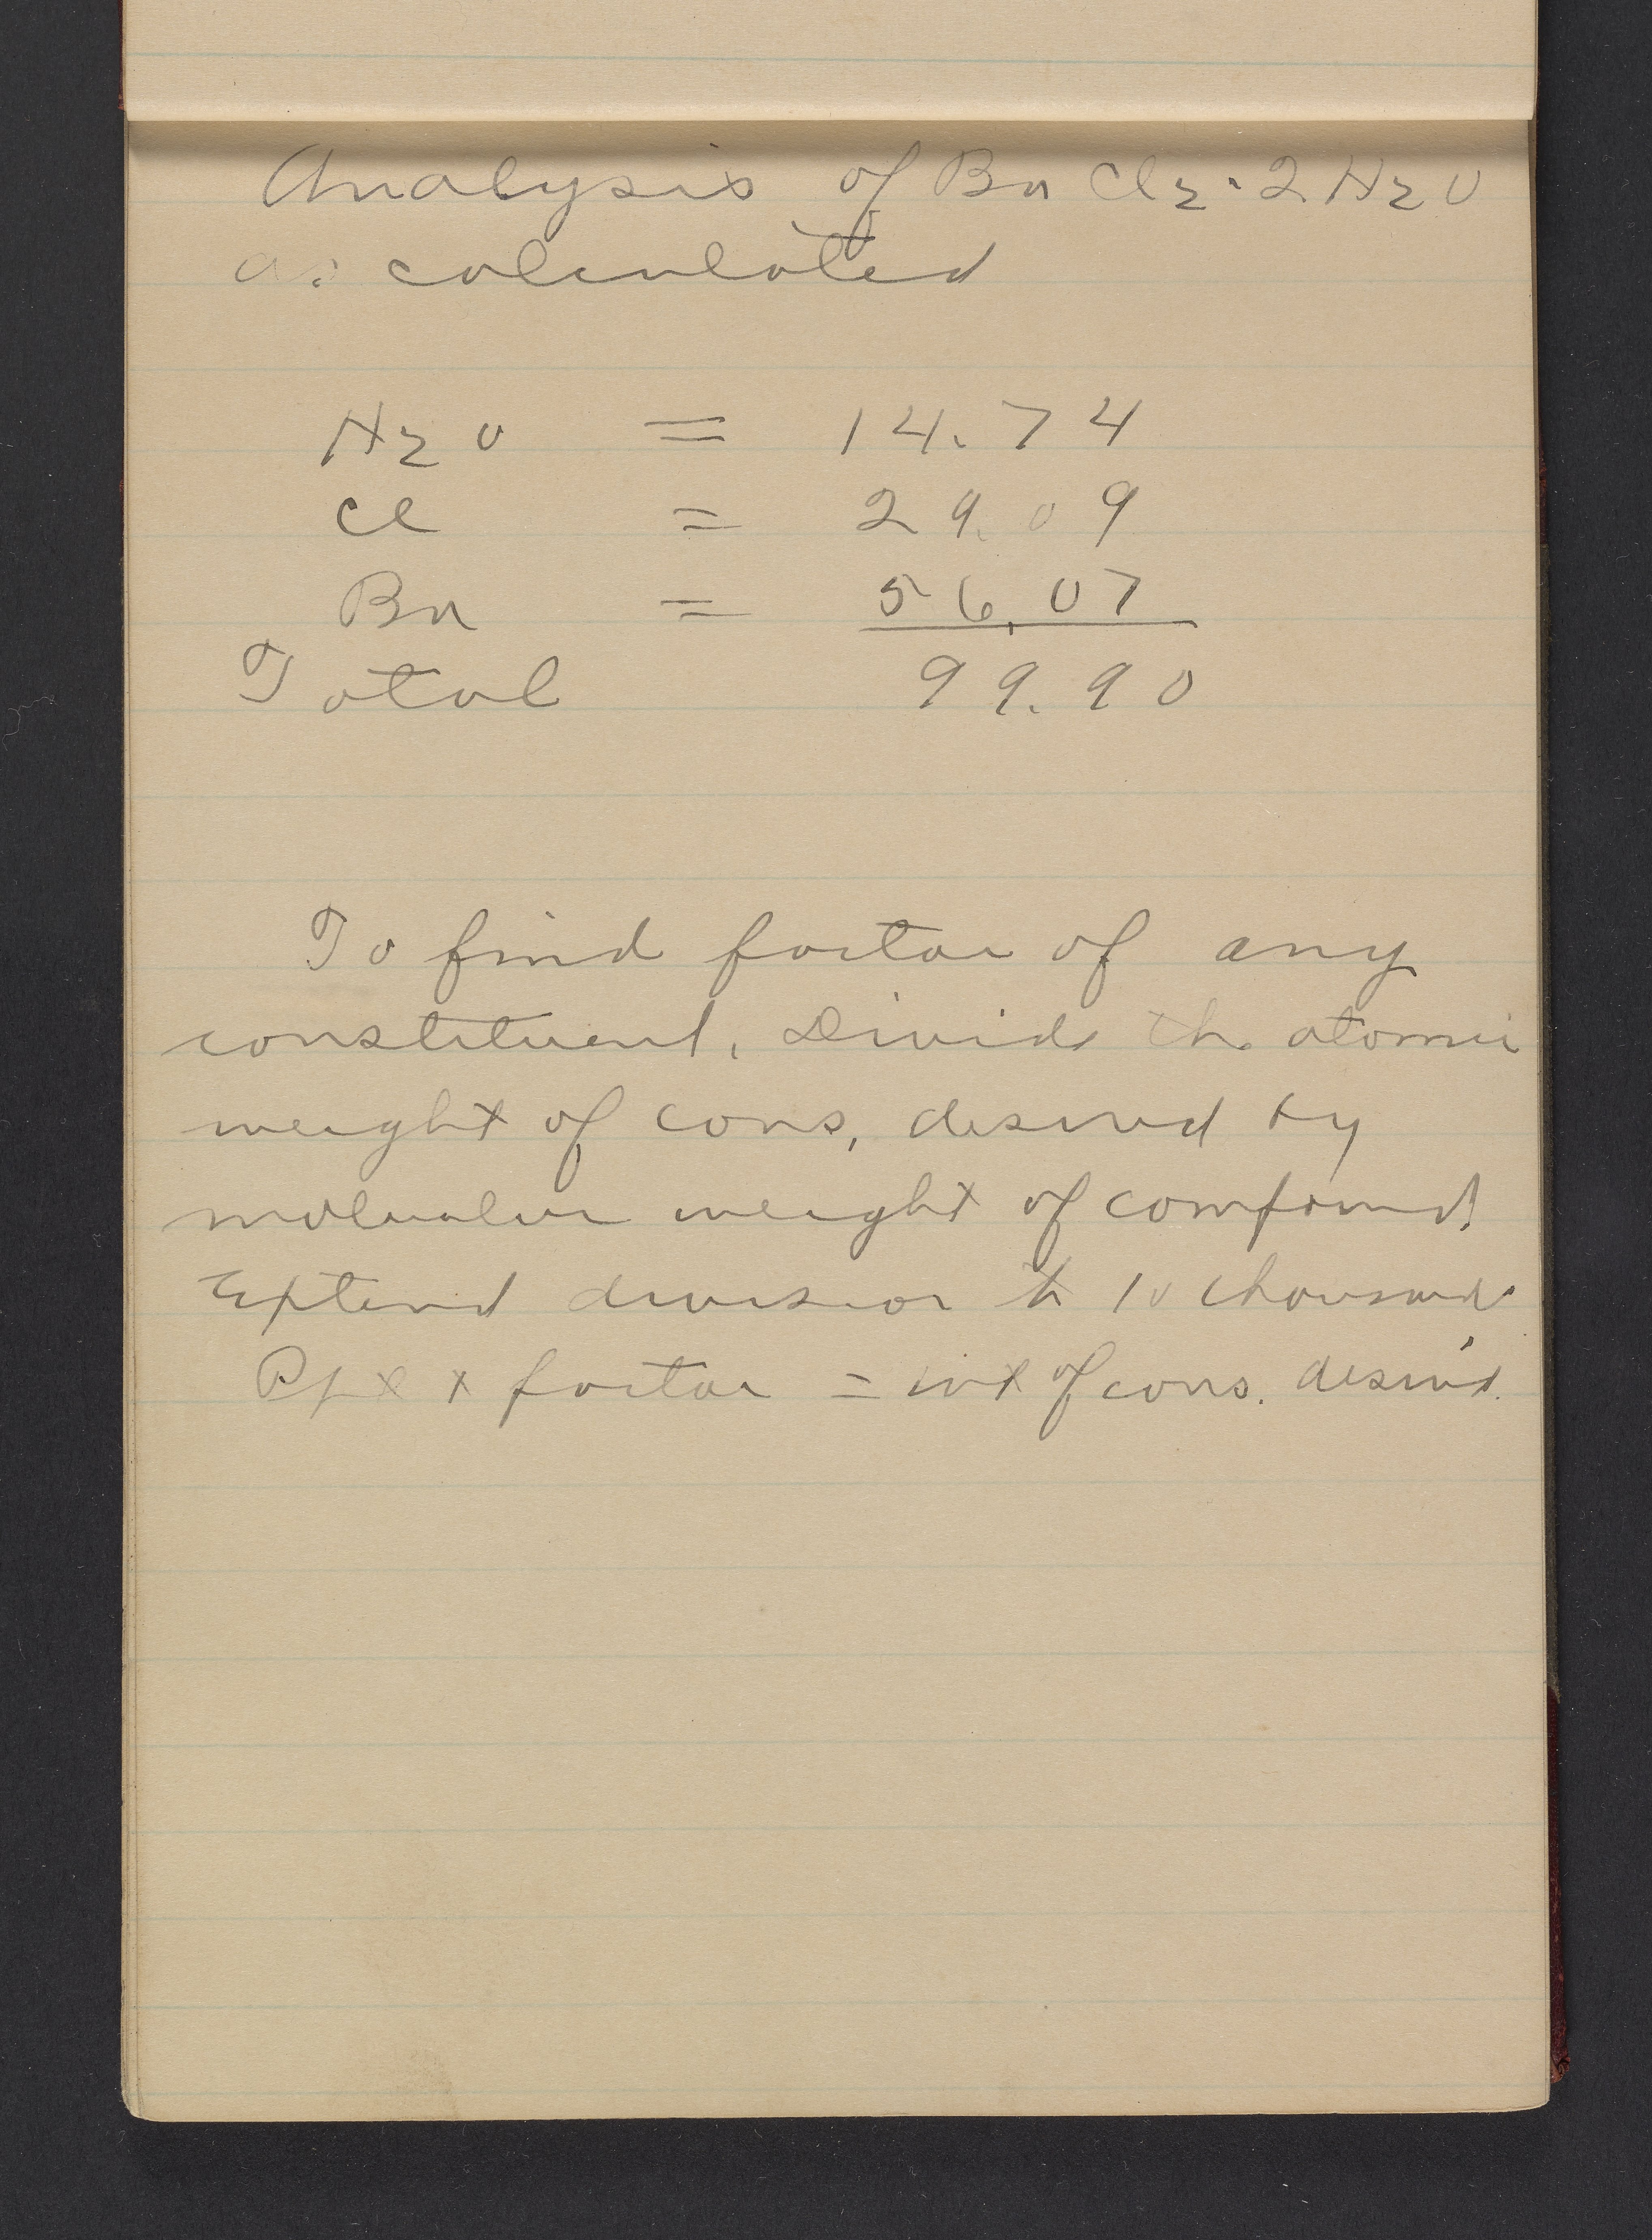 Analysis of BaCl2·2H2O
as calculated
H2O = 14.74
Cl = 29.09
Ba = 56.07
Total 99.90
To find factor of any
constituent, Divide the atomic
weight of cons, desired by
molecular weight of compound.
Extend division to 10 thousands
Ppt x factor = wt of cons. desired.